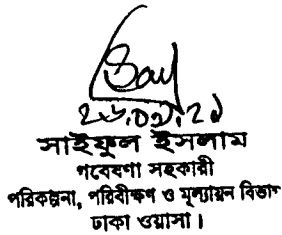 ২৬.০৭.২১
সাইফুল ইসলাম
গবেষণা সহকারী
পরিকল্পনা, পরিবীক্ষণ ও মূল্যায়ন বিভাগ
ঢাকা ওয়াসা।